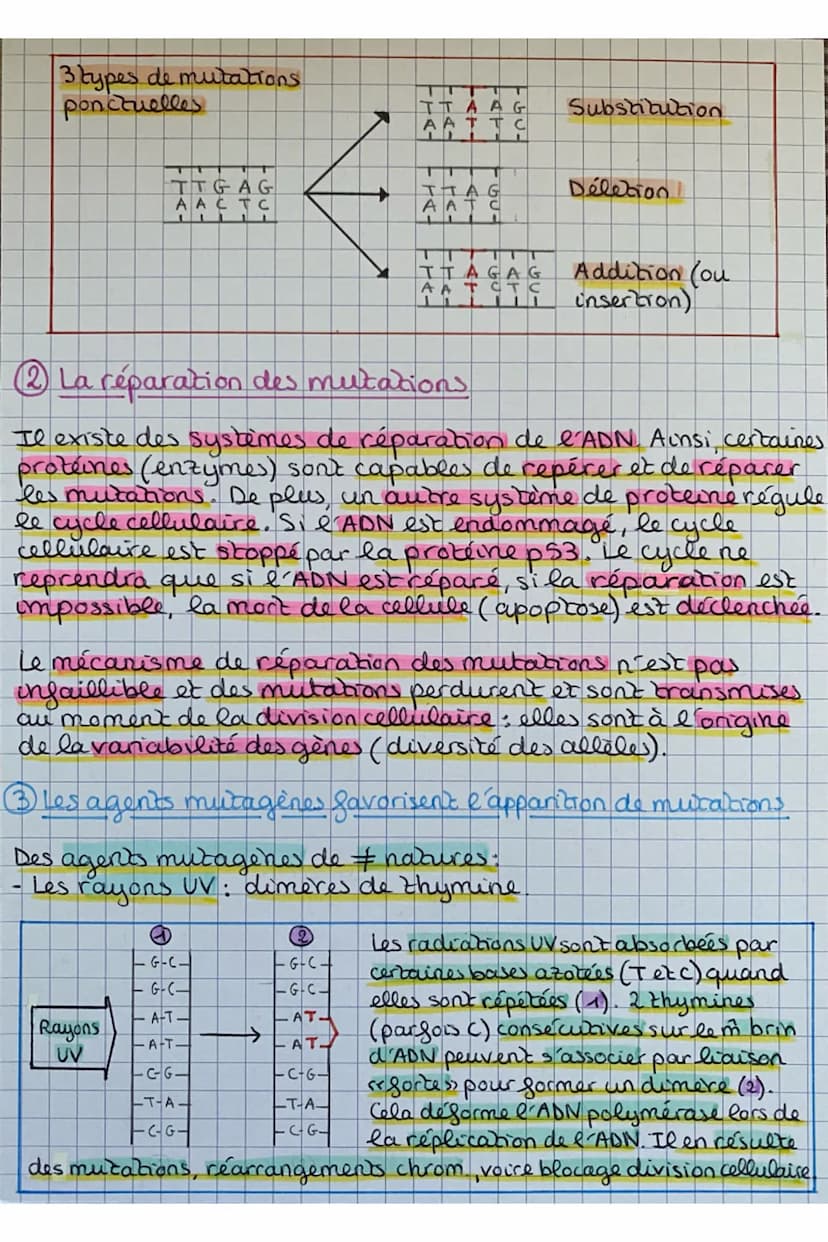 3 types de mutations
ponctuelles
T T G A G
A A C T C
T T A A G
A A T T C
Substitution
T T A G
A A T C
Délétion
T T A G A G
A A T C T C
Addition (ou
insertion)
② La réparation des mutations
Il existe des systèmes de réparation de l'ADN. Ainsi, certaines
protéines (enzymes) sont capables de repérer et de réparer
les mutations. De plus, un autre système de proteine régule
le cycle cellulaire. Si l'ADN est endommagé, le cycle
cellulaire est stoppé par la protéine p53. Le cycle ne
reprendra que si l'ADN est réparé, si la réparation est
impossible, la mort de la cellule (apoptose) est déclenchée.
Le mécanisme de réparation des mutations n'est pas
infaillible et des mutations perdurent et sont transmises
au moment de la division cellulaire : elles sont à l'origine
de la variabilité des gènes (diversité des allèles).
③ Les agents mutagènes favorisent l'apparition de mutations
Des agents mutagènes de ≠ natures :
- Les rayons UV : dimères de thymine.
Rayons
UV
①
G-C
G-C
A-T
A-T
C-G
T-A
C-G
②
G-C
G-C
AT
AT
C-G
T-A
C-G
Les radiations UV sont absorbées par
certaines bases azotées (T et C) quand
elles sont répétées (1). 2 thymines
(parfois C) consécutives sur le m̂ brin
d'ADN peuvent s'associer par liaison
«forte» pour former un dimère (2).
Cela déforme l'ADN polymérase lors de
la réplication de l'ADN. Il en résulte
des mutations, réarrangements chrom., voire blocage division cellulaire